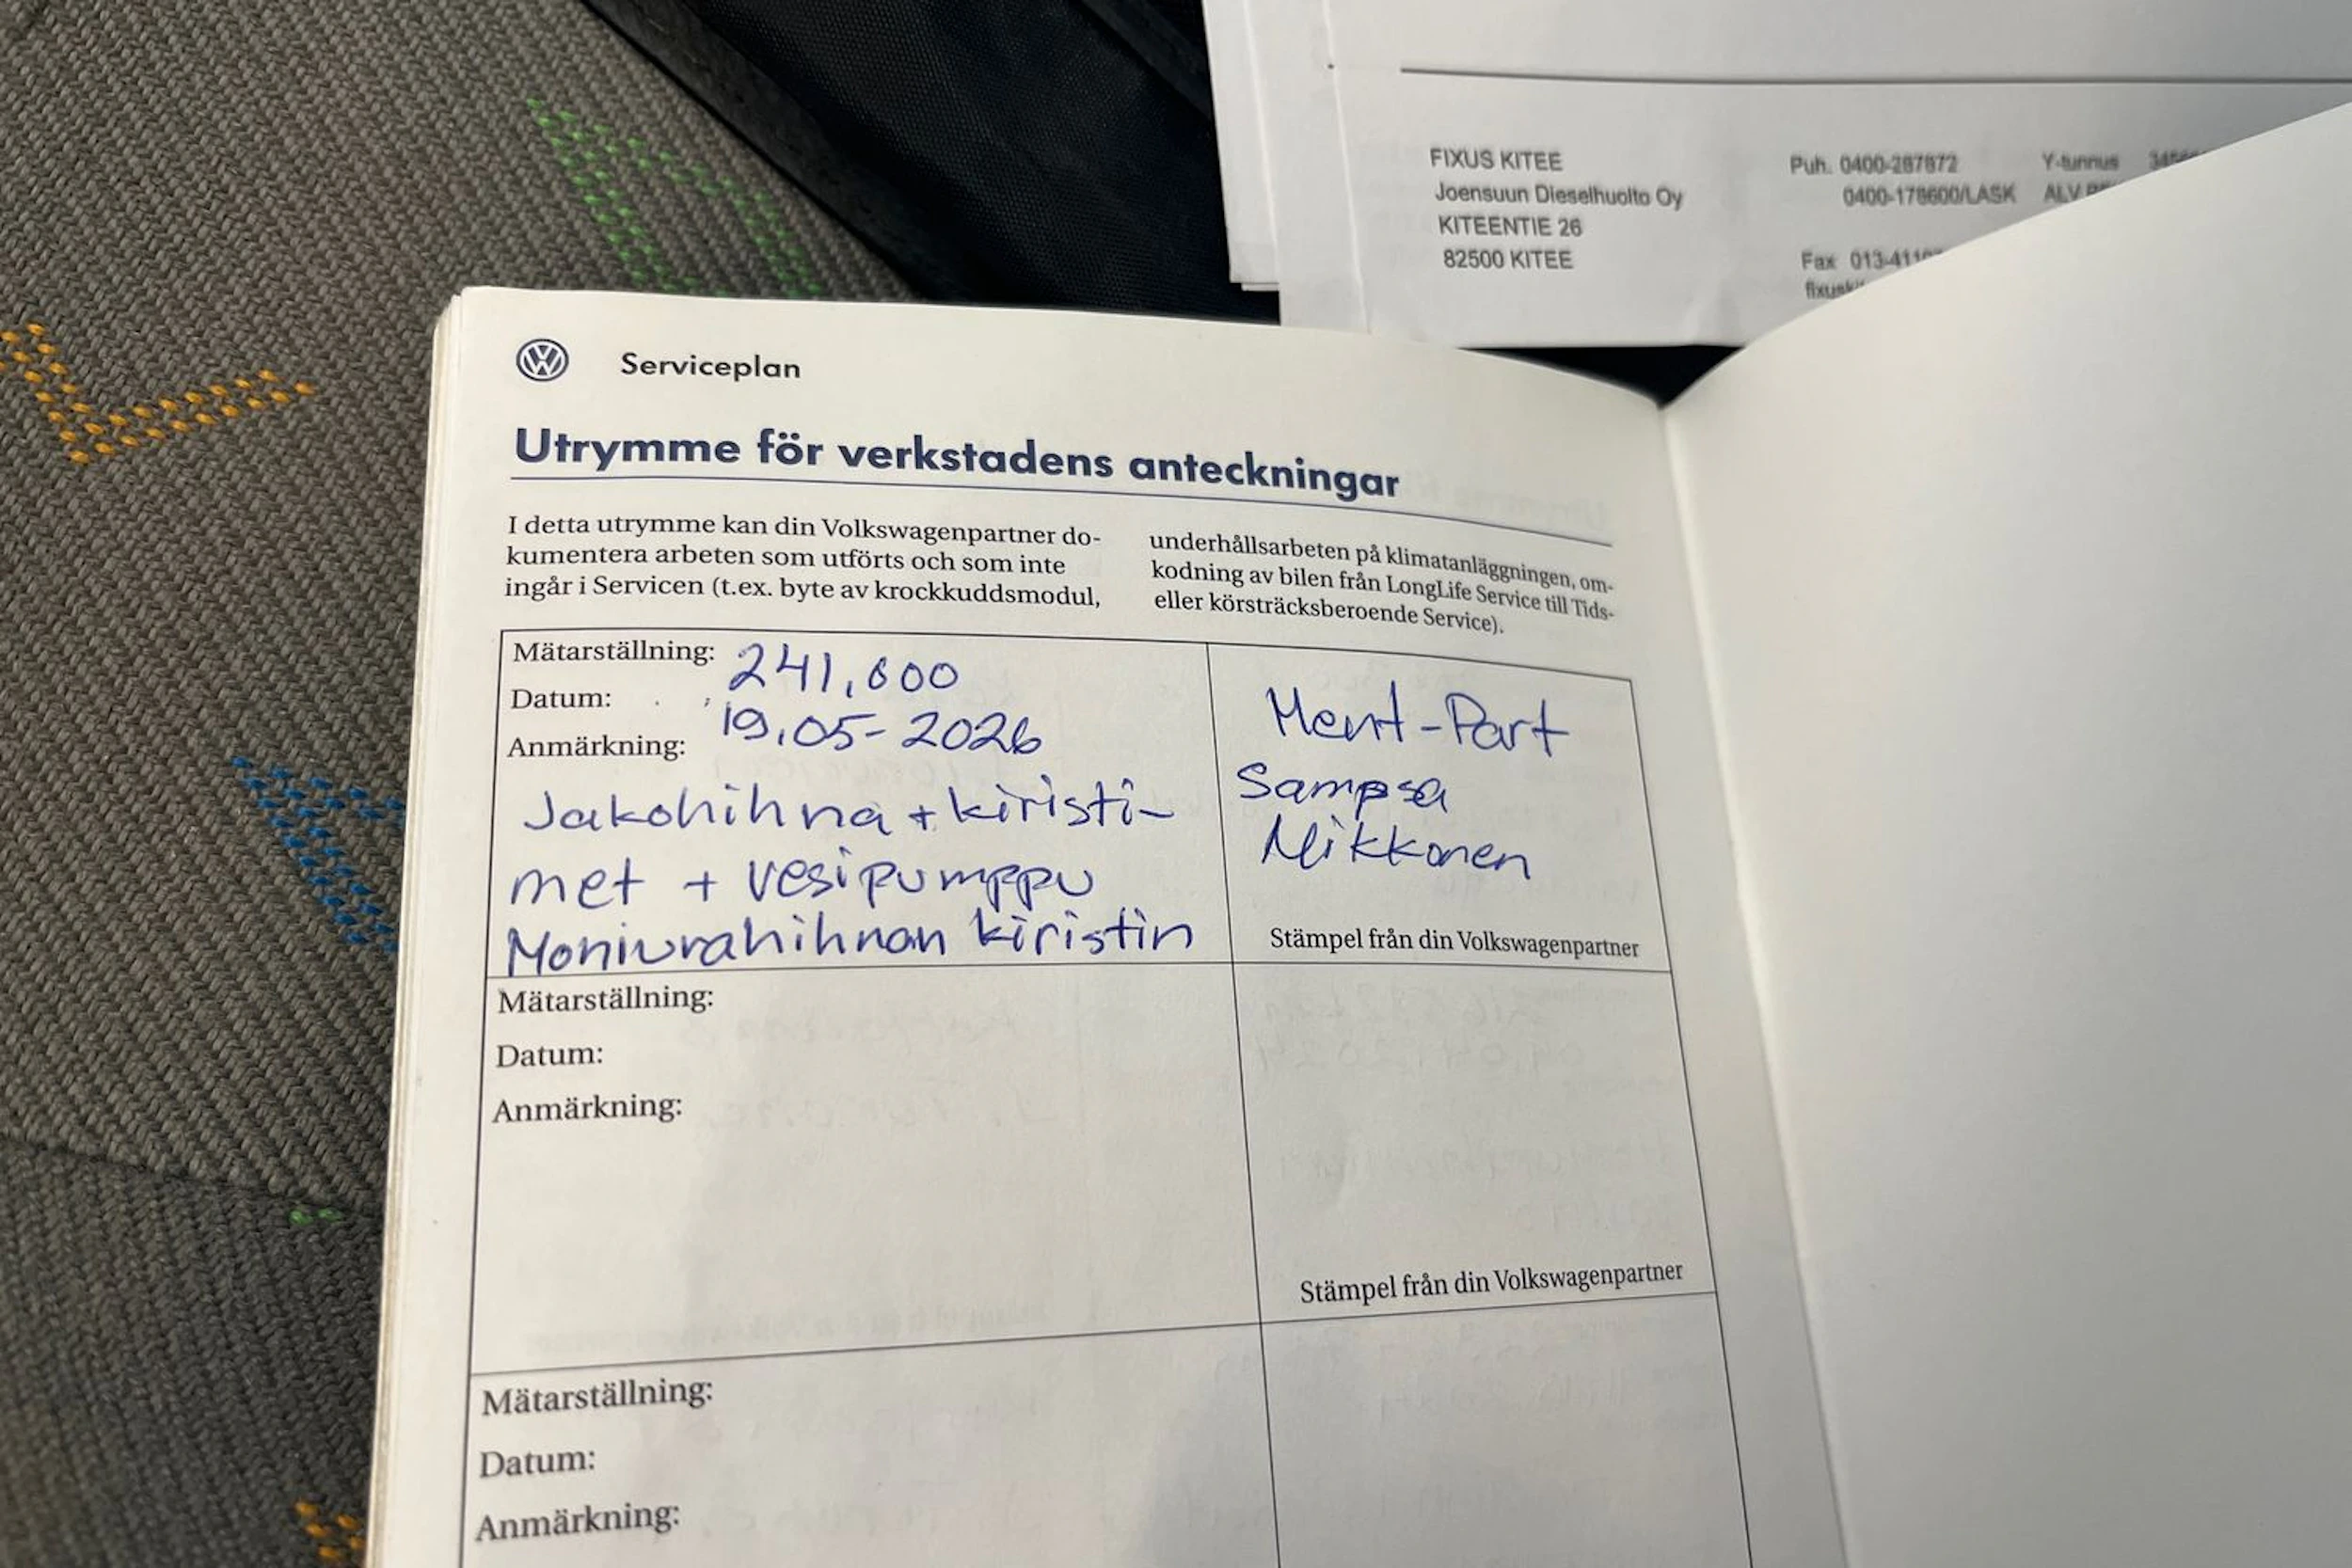 FIXUS KITEE
Joensuun Dieselhuolto Oy
KITEENTIE 26
82500 KITEE
Puh. 0400-287872
0400-178600/LASK
Fax 013-411
Y-tunnus
ALV
Serviceplan
Utrymme för verkstadens anteckningar
I detta utrymme kan din Volkswagenpartner do-
kumentera arbeten som utförts och som inte
ingår i Servicen (t.ex. byte av krockkuddsmodul,
underhållsarbeten på klimatanläggningen, om-
kodning av bilen från LongLife Service till Tids-
eller körsträcksberoende Service).
Mätarställning: 241,600
Datum: 19.05-2026
Anmärkning:
Jakohihna + kiristi-
met + vesipumppu
Moniurahihnan kiristin
Ment-Part
Sampsa
Mikkonen
Stämpel från din Volkswagenpartner
Mätarställning:
Datum:
Anmärkning:
Stämpel från din Volkswagenpartner
Mätarställning:
Datum:
Anmärkning: